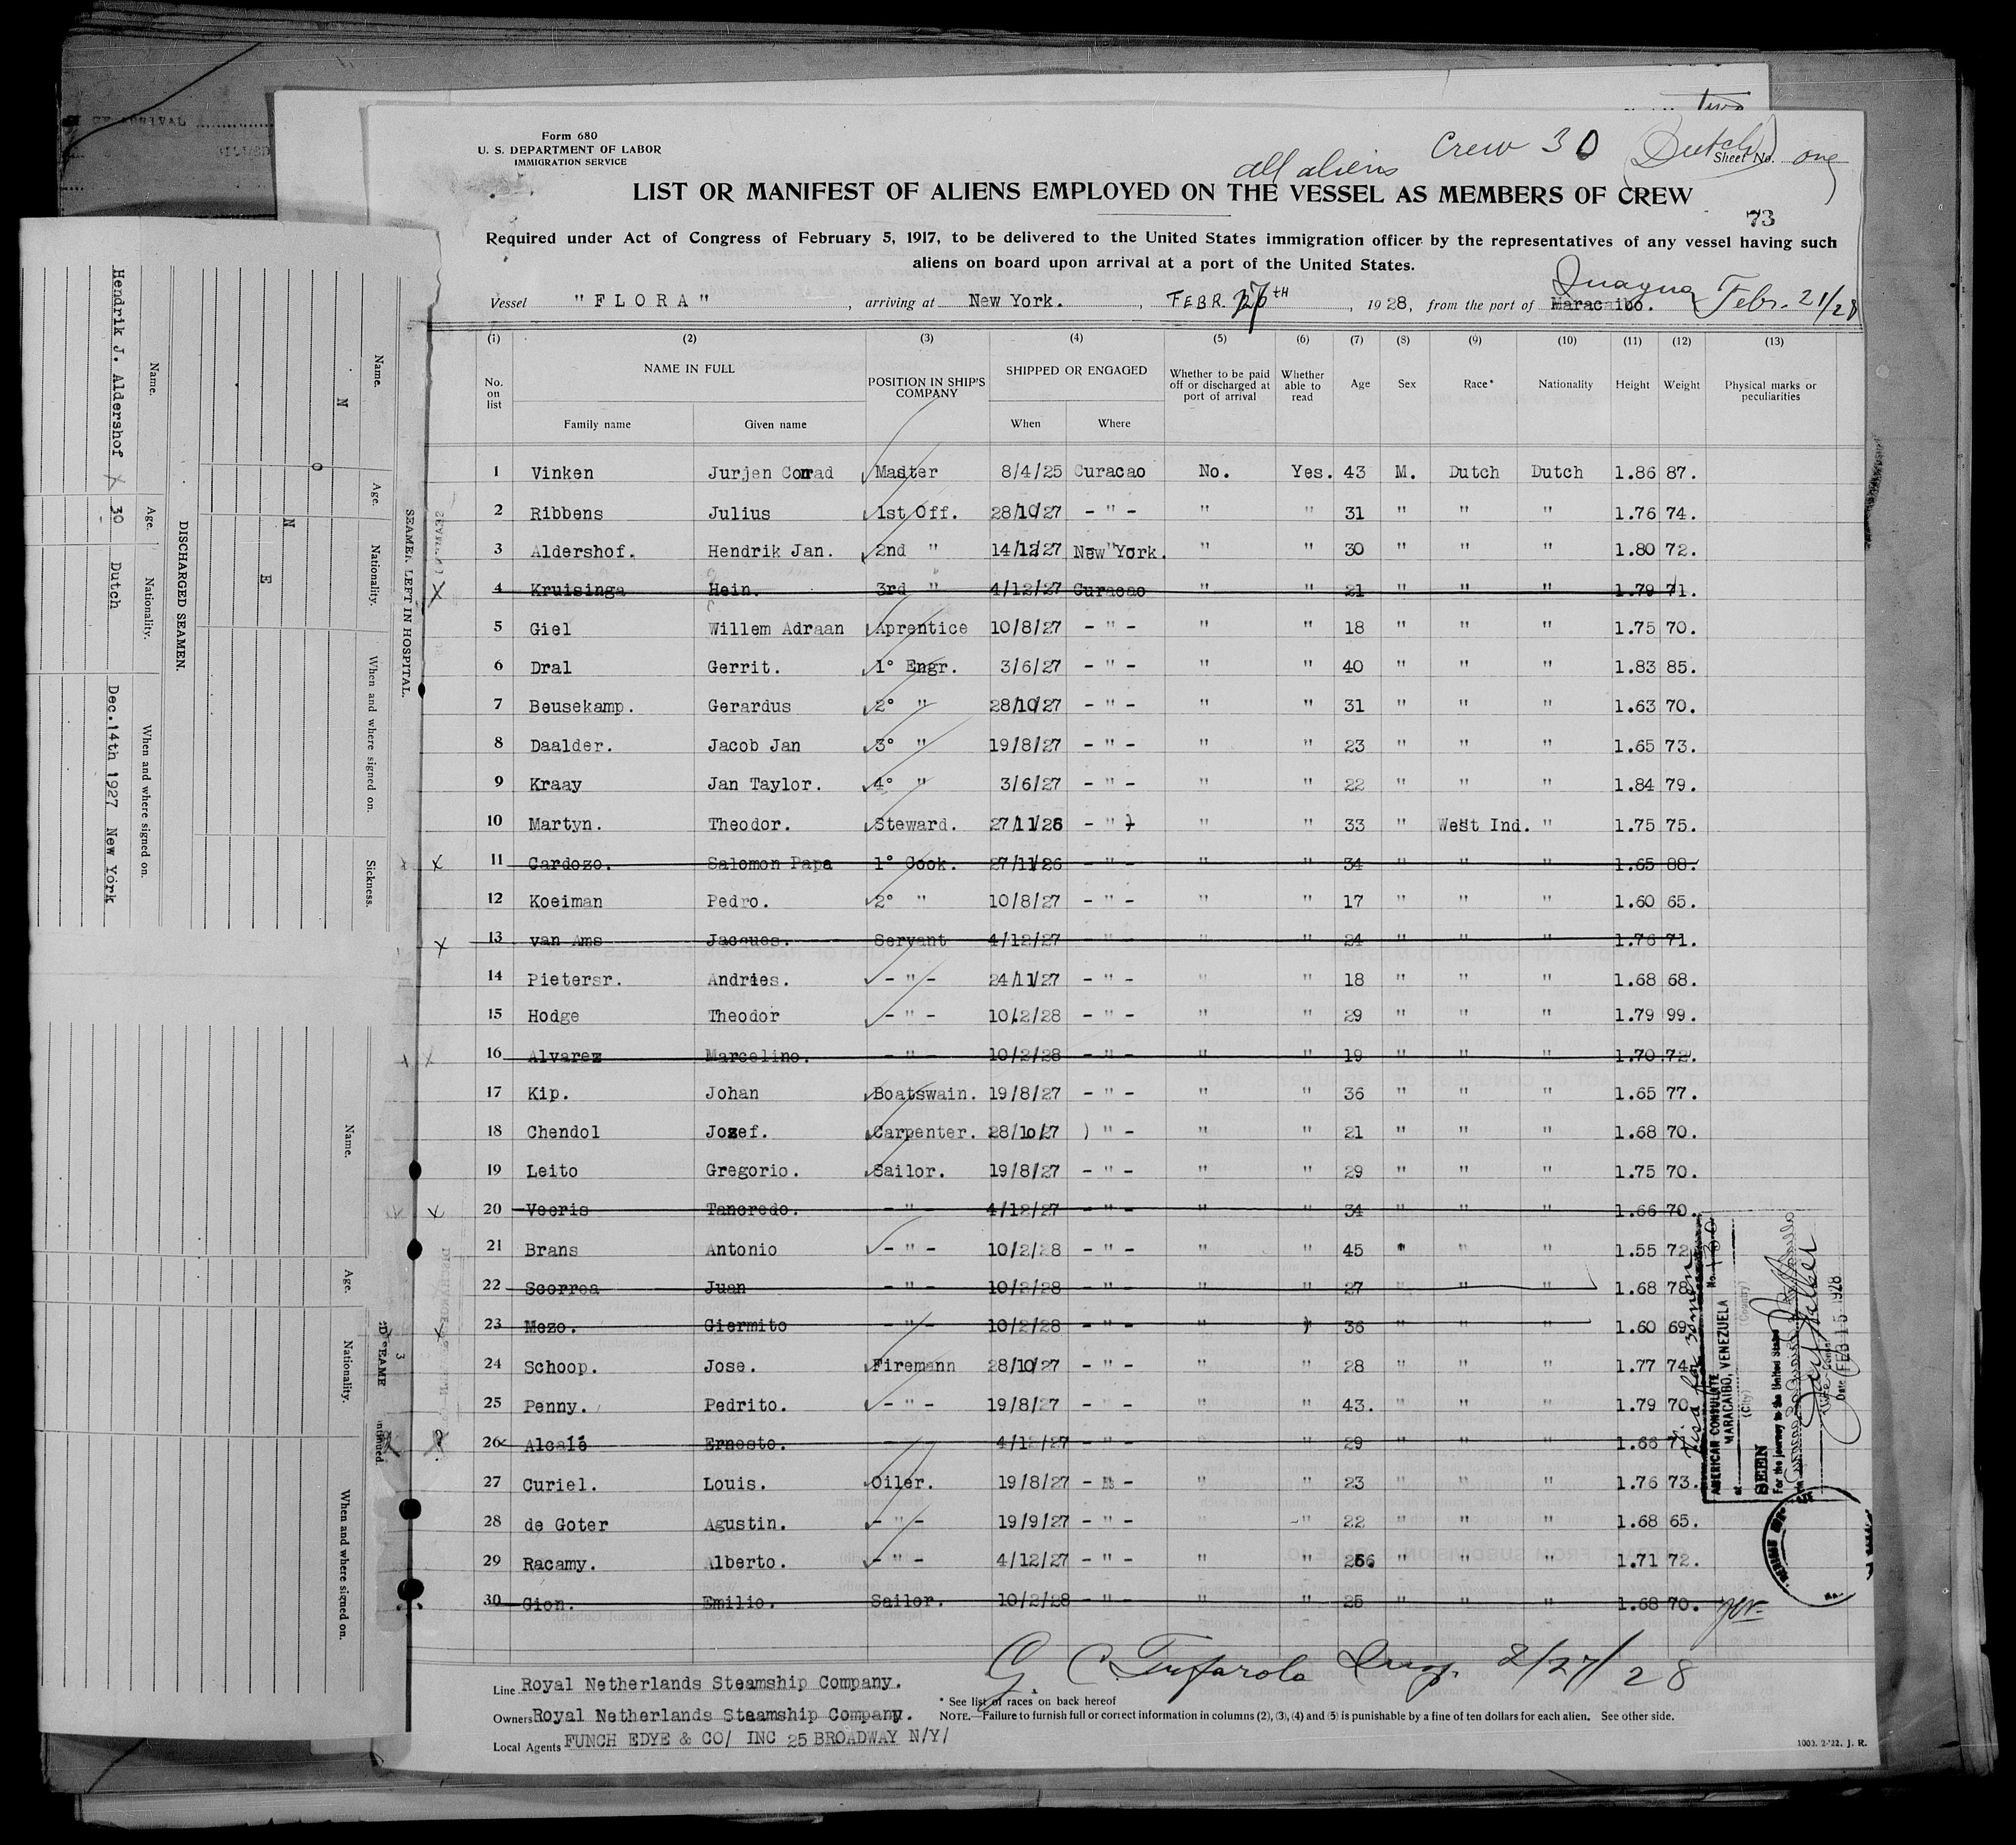 two
Form 680
U. S. DEPARTMENT OF LABOR
IMMIGRATION SERVICE
all aliens
Crew 30
(Dutch)
Sheet No. one
LIST OR MANIFEST OF ALIENS EMPLOYED ON THE VESSEL AS MEMBERS OF CREW
73
Required under Act of Congress of February 5, 1917, to be delivered to the United States immigration officer by the representatives of any vessel having such
aliens on board upon arrival at a port of the United States.
Vessel "FLORA", arriving at New York., FEBR. 27th, 1928, from the port of Maracaibo. Febr. 21/28
(1) (2) (3) (4) (5) (6) (7) (8) (9) (10) (11) (12) (13)
No. on list NAME IN FULL POSITION IN SHIP'S COMPANY SHIPPED OR ENGAGED Whether to be paid off or discharged at port of arrival Whether able to read Age Sex Race* Nationality Height Weight Physical marks or peculiarities
Family name Given name When Where
1 Vinken Jurjen Conrad Master 8/4/25 Curacao No. Yes. 43 M. Dutch Dutch 1.86 87.
2 Ribbens Julius 1st Off. 28/10/27 - " - " " 31 " " " 1.76 74.
3 Aldershof. Hendrik Jan. 2nd " 14/12/27 New York. " " 30 " " " 1.80 72.
4 Kruisinga Hein. 3rd " 4/12/27 Curacao " " 21 " " " 1.79 71.
5 Giel Willem Adraan Aprentice 10/8/27 - " - " " 18 " " " 1.75 70.
6 Dral Gerrit. 1° Engr. 3/6/27 - " - " " 40 " " " 1.83 85.
7 Beusekamp. Gerardus 2° " 28/10/27 - " - " " 31 " " " 1.63 70.
8 Daalder. Jacob Jan 3° " 19/8/27 - " - " " 23 " " " 1.65 73.
9 Kraay Jan Taylor. 4° " 3/6/27 - " - " " 22 " " " 1.84 79.
10 Martyn. Theodor. Steward. 27/11/26 - " - " " 33 " West Ind. " 1.75 75.
11 Cardozo. Salomon Papa 1° Cook. 27/11/26 - " - " " 34 " " " 1.65 88.
12 Koeiman Pedro. 2° " 10/8/27 - " - " " 17 " " " 1.60 65.
13 van Ams Jacques. Servant 4/12/27 - " - " " 24 " " " 1.76 71.
14 Pietersr. Andries. - " - 24/11/27 - " - " " 18 " " " 1.68 68.
15 Hodge Theodor - " - 10/2/28 - " - " " 29 " " " 1.79 99.
16 Alvarez Marcelino. - " - 10/2/28 - " - " " 19 " " " 1.70 72.
17 Kip. Johan Boatswain. 19/8/27 - " - " " 36 " " " 1.65 77.
18 Chendol Jozef. Carpenter. 28/10/27 " - " " 21 " " " 1.68 70.
19 Leito Gregorio. Sailor. 19/8/27 - " - " " 29 " " " 1.75 70.
20 Voeris Tancredo. - " - 4/12/27 - " - " " 34 " " " 1.66 70.
21 Brans Antonio - " - 10/2/28 - " - " " 45 " " " 1.55 72
22 Scorrea Juan - " - 10/2/28 - " - " " 27 " " " 1.68 78
23 Mezo. Giermito - " - 10/2/28 - " - " " 36 " " " 1.60 69
24 Schoop. Jose. Firemann 28/10/27 - " - " " 28 " " " 1.77 74
25 Penny. Pedrito. - " - 19/8/27 - " - " " 43. " " " 1.79 70
26 Alcalé Ernesto. - " - 4/12/27 - " - " " 29 " " " 1.66
27 Curiel. Louis. Oiler. 19/8/27 - " - " " 23 " " " 1.76 73.
28 de Goter Agustin. - " - 19/9/27 - " - " " 22 " " " 1.68 65.
29 Racamy. Alberto. - " - 4/12/27 - " - " " 26 " " " 1.71 72.
30 Gion. Emilio. Sailor. 10/2/28 - " - " " 25 " " " 1.68 70.
Visa for 30 men
AMERICAN CONSULATE
at MARACAIBO, VENEZUELA
(City) (Country)
No. 130
SEEN
For the journey to the United States
Date FEB 15 1928
2/27/28
Line Royal Netherlands Steamship Company.
Owners Royal Netherlands Steamship Company.
Local Agents FUNCH EDYE & CO/ INC 25 BROADWAY N/Y/
* See list of races on back hereof
NOTE.—Failure to furnish full or correct information in columns (2), (3), (4) and (5) is punishable by a fine of ten dollars for each alien. See other side.
1000. 2-'22. J. R.
SEAMEN LEFT IN HOSPITAL.
Name. Age. Nationality. When and where signed on. Sickness.
N O N E
DISCHARGED SEAMEN.
Name. Age. Nationality. When and where signed on.
Hendrik J. Aldershof 30 Dutch Dec.14th 1927 New York
Name. Age. Nationality. When and where signed on.